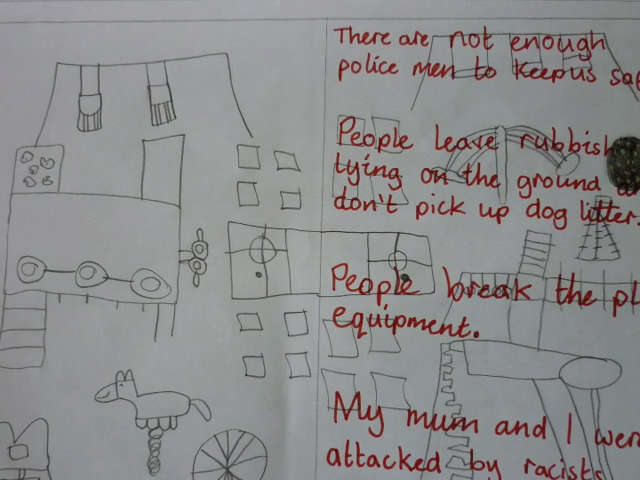 There are not enough
police men to keep us
People leave rubbish
lying on the ground
don't pick up dog litter.
People break the
equipment.
My mum and I
attacked by racists